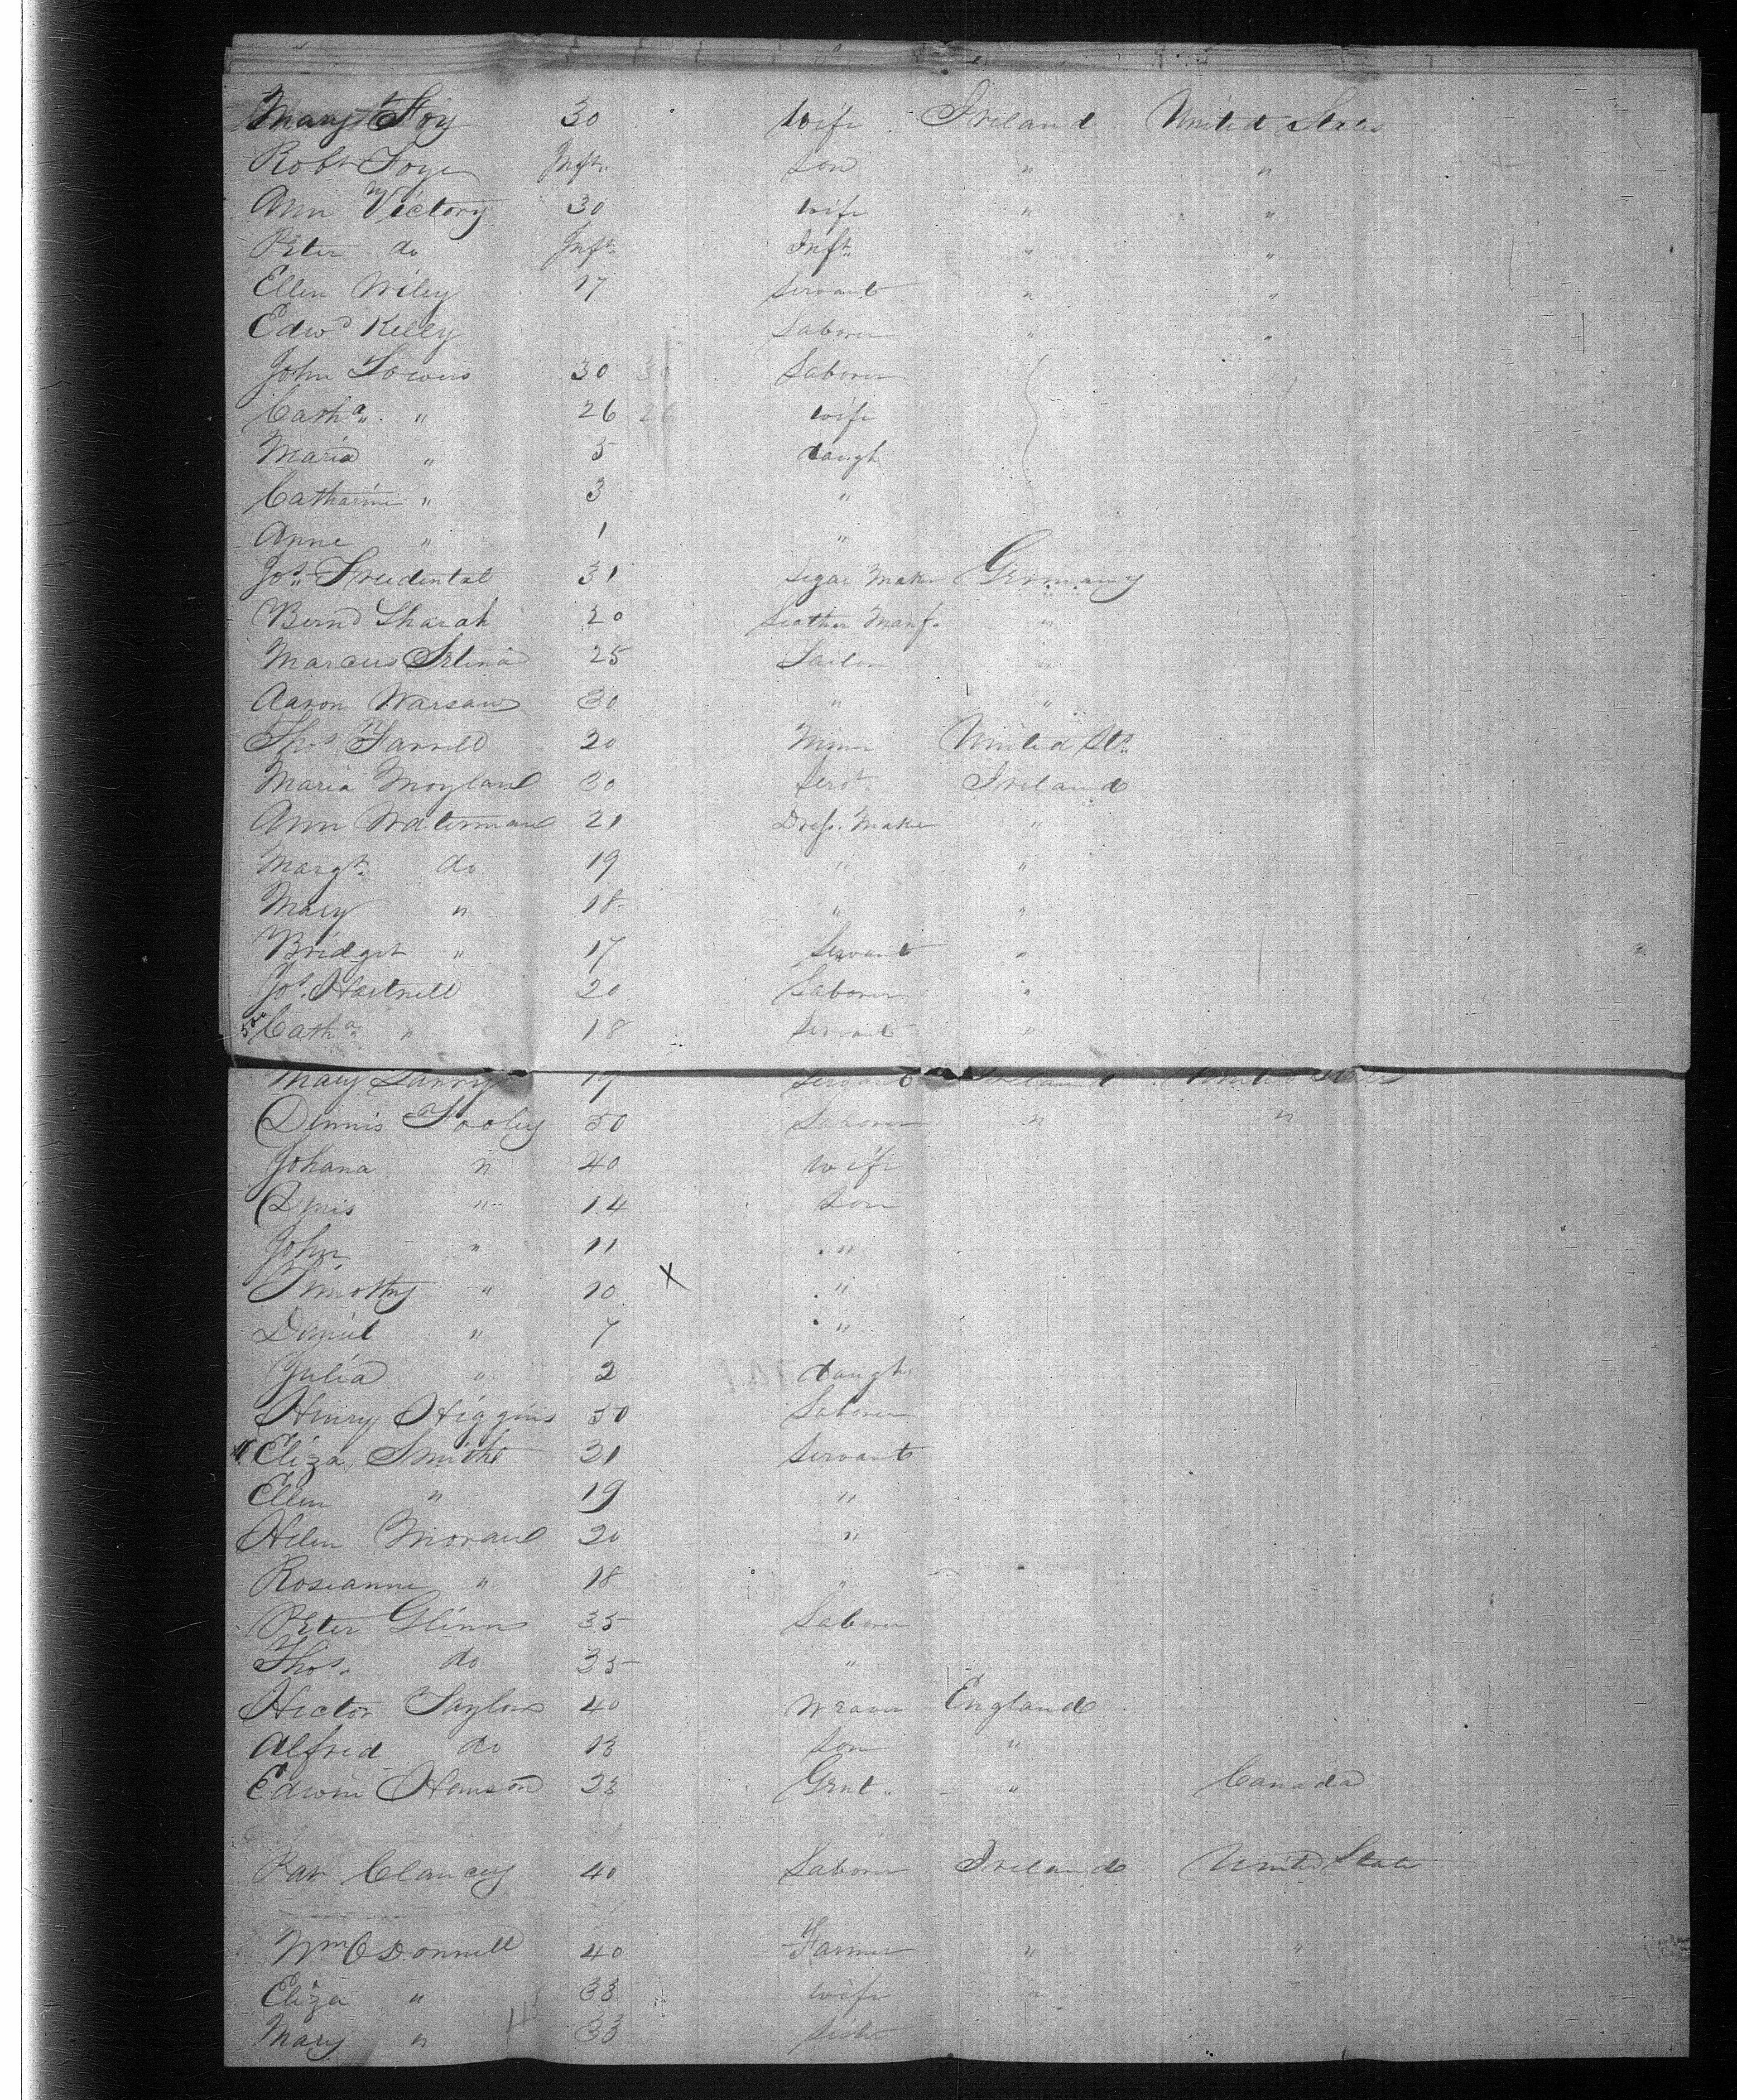 Margt Foy 30 wife Ireland United States
Robt Foye Inft. son " "
Ann Victory 30 wife " "
Peter do Inft. Inft. " "
Ellen Wiley 17 servant " "
Edwd Kelly Laborer " "
John Towers 30 30 Laborer
Catha. " 26 26 wife
Maria " 5 daugh
Catharine " 3 "
Anne " 1 "
Jos. Freudental 31 Segar Maker Germany
Bernd Sharah 20 Leather Manf. "
Marcus 25 Tailor "
Aaron Warsaw 30 " "
Thos Farrell 20 Miner United Sts.
Maria Moyland 30 Servt. Ireland
Ann Waterman 21 Dress Maker "
Margt. do 19 " "
Mary " 18 " "
Bridget " 17 Servant "
Jos. Hartnell 20 Laborer "
Catha " 18 servant "
Mary Larry 19 Servant Ireland United States
Dennis Fooley 50 Laborer " "
Johana " 40 wife
Denis " 14 son
John " 11 "
Timothy " 10 X "
Daniel " 7 "
Julia " 2 daugh.
Henry Higgins 50 Laborer
Eliza Smith 21 Servant
Ellen " 19 "
Helen Morand 20 "
Roseanne " 18 "
Peter Glinn 35 Laborer
Thos. do 35 "
Hector Taylor 40 Weaver England
Alfred do 13 son "
Edwin Hewson 23 Gent. " Canada
Pat Clancey 40 Laborer Ireland United State
Wm O'Donnell 40 Farmer " "
Eliza " 33 wife " "
Mary " 33 Sister